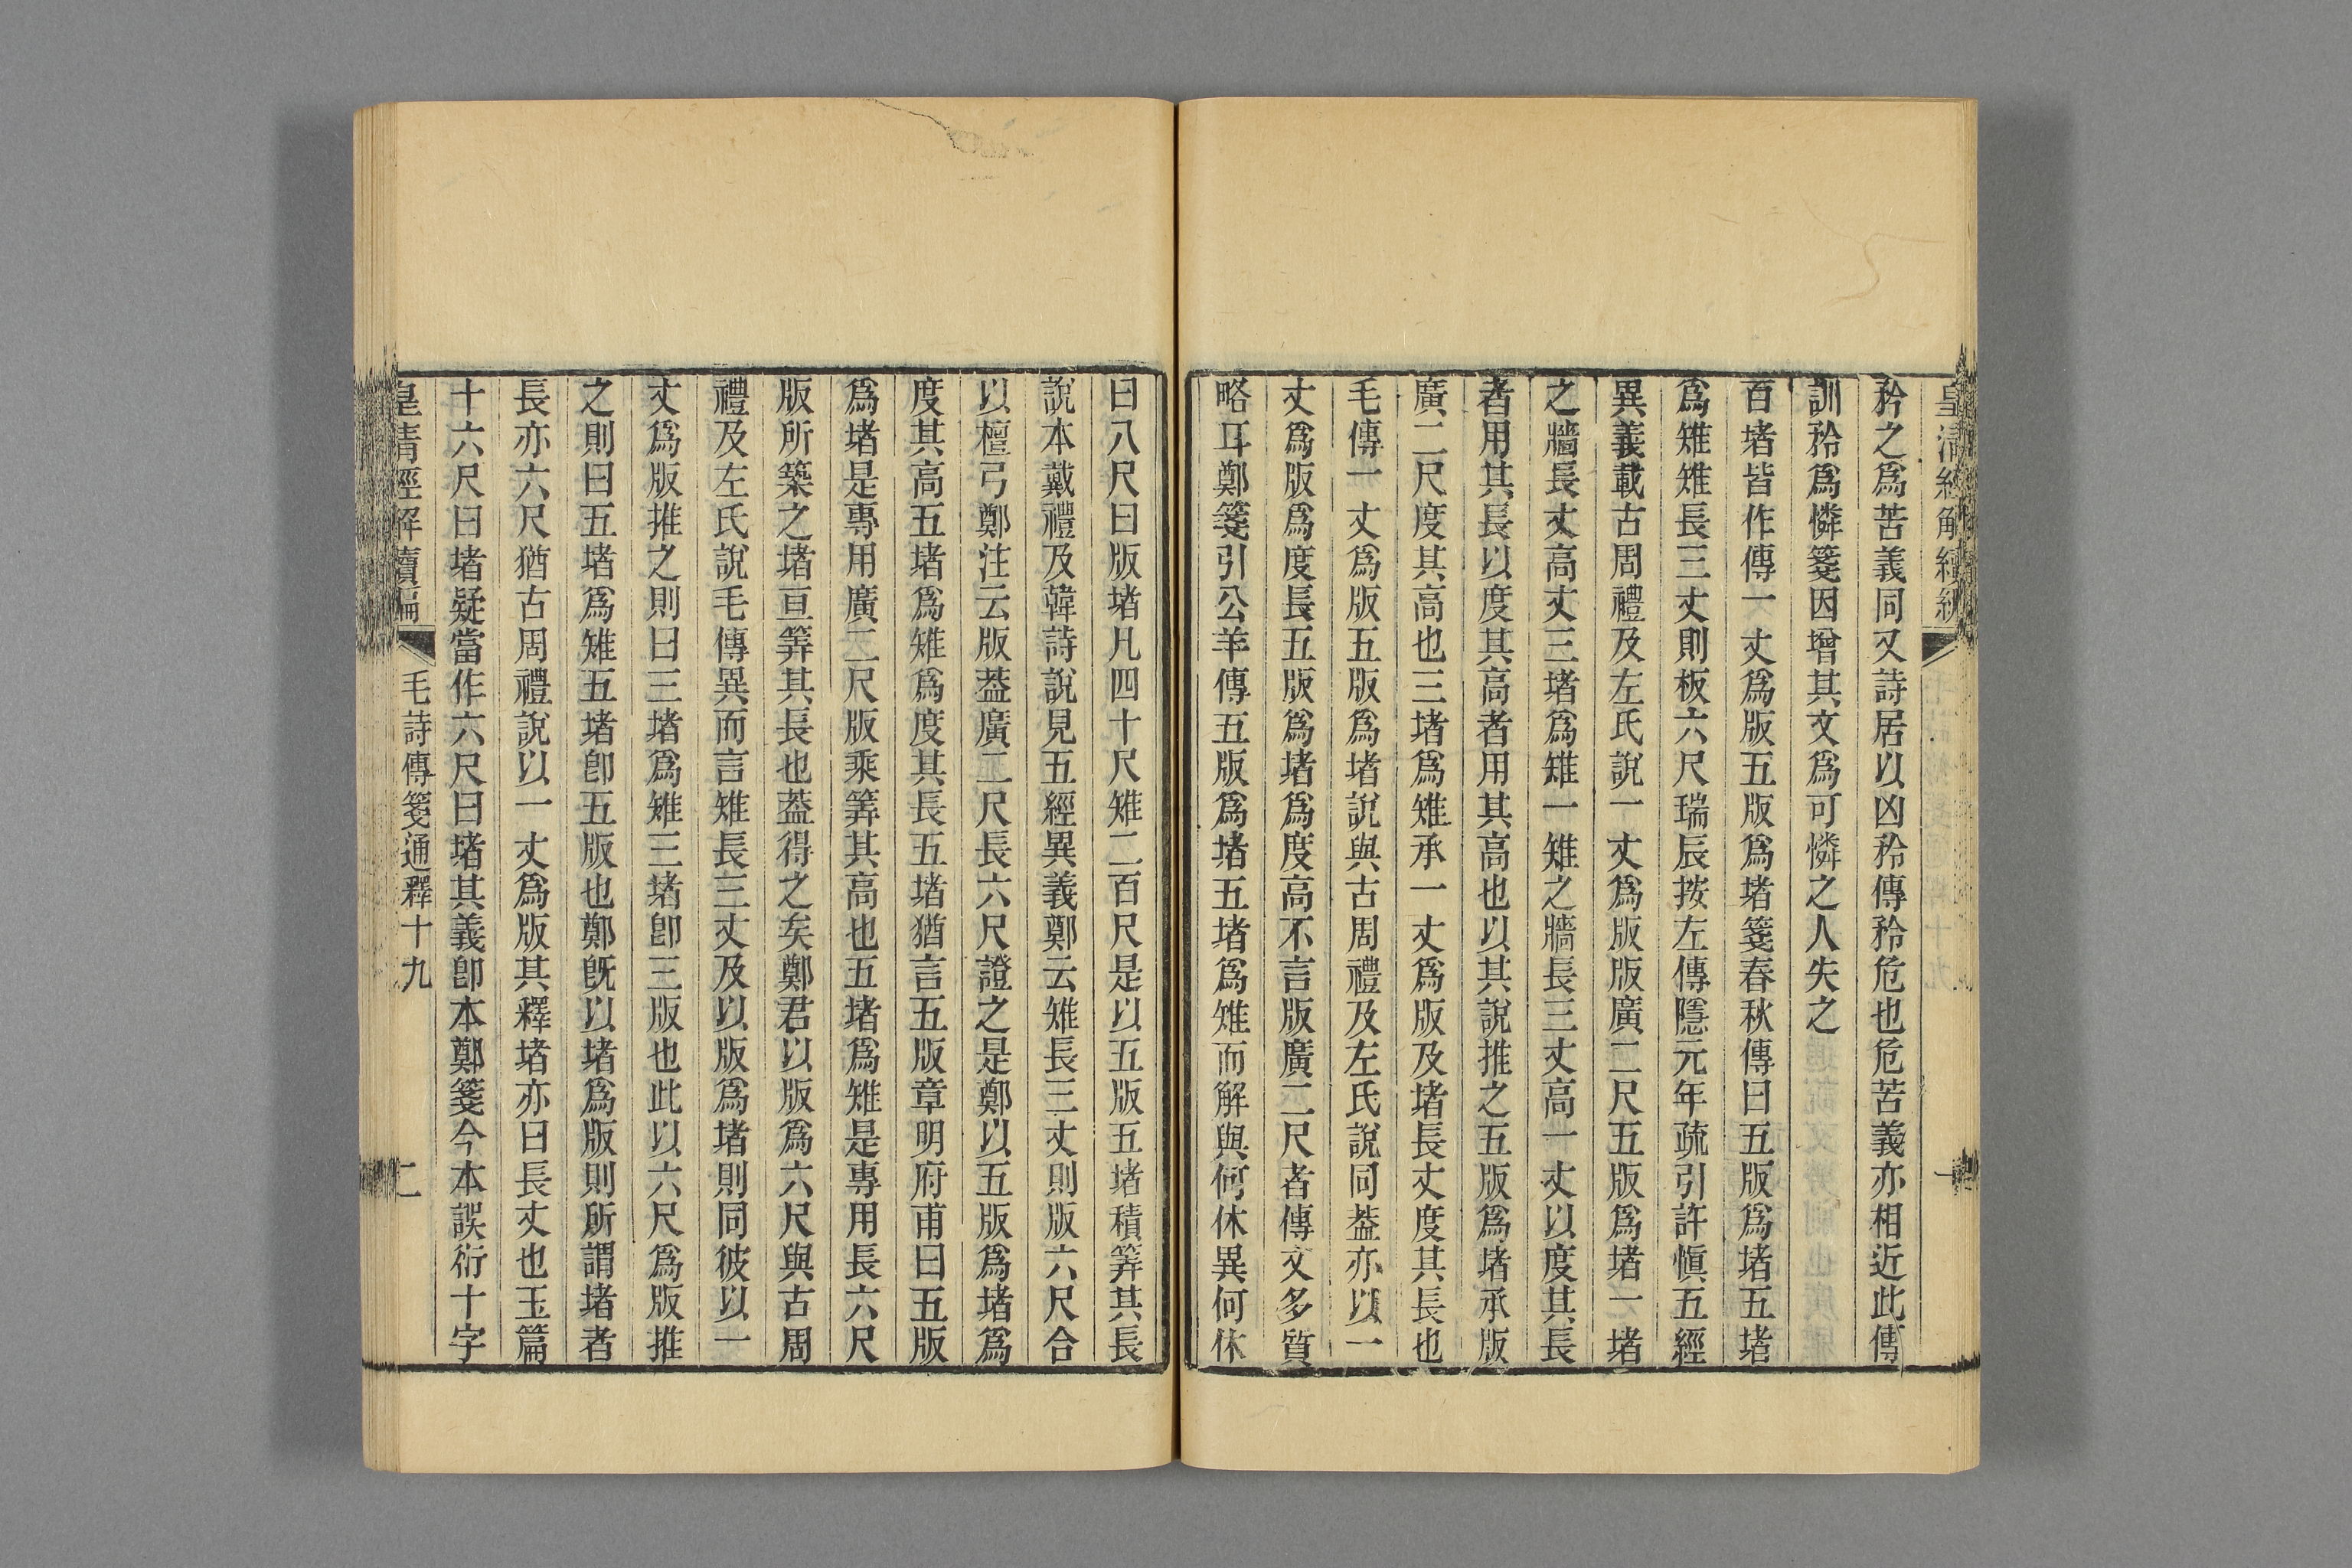 皇清經解續編
一
矜之爲苦義同又詩居以凶矜傳矜危也危苦義亦相近此傳
訓矜爲憐箋因增其文爲可憐之人失之
百堵皆作傳一丈爲版五版爲堵箋春秋傳曰五版爲堵五堵
爲雉雉長三丈則板六尺瑞辰按左傳隱元年疏引許愼五經
異義載古周禮及左氏說一丈爲版版廣二尺五版爲堵一堵
之牆長丈高丈三堵爲雉一雉之牆長三丈高一丈以度其長
者用其長以度其高者用其高也以其說推之五版爲堵承版
廣二尺度其高也三堵爲雉承一丈爲版及堵長丈度其長也
毛傳一丈爲版五版爲堵說與古周禮及左氏說同葢亦以一
丈爲版爲度長五版爲堵爲度高不言版廣二尺者傳文多質
略耳鄭箋引公羊傳五版爲堵五堵爲雉而解與何休異何休
曰八尺曰版堵凡四十尺雉二百尺是以五版五堵積筭其長
說本戴禮及韓詩說見五經異義鄭云雉長三丈則版六尺合
以檀弓鄭注云版葢廣二尺長六尺證之是鄭以五版爲堵爲
度其高五堵爲雉爲度其長五堵猶言五版章明府甫曰五版
爲堵是專用廣二尺版乘筭其高也五堵爲雉是專用長六尺
版所築之堵亘筭其長也葢得之矣鄭君以版爲六尺與古周
禮及左氏說毛傳異而言雉長三丈及以版爲堵則同彼以一
丈爲版推之則曰三堵爲雉三堵卽三版也此以六尺爲版推
之則曰五堵爲雉五堵卽五版也鄭旣以堵爲版則所謂堵者
長亦六尺猶古周禮說以一丈爲版其釋堵亦曰長丈也玉篇
十六尺曰堵疑當作六尺曰堵其義卽本鄭箋今本誤衍十字
皇清經解續編
毛詩傳箋通釋十九
二